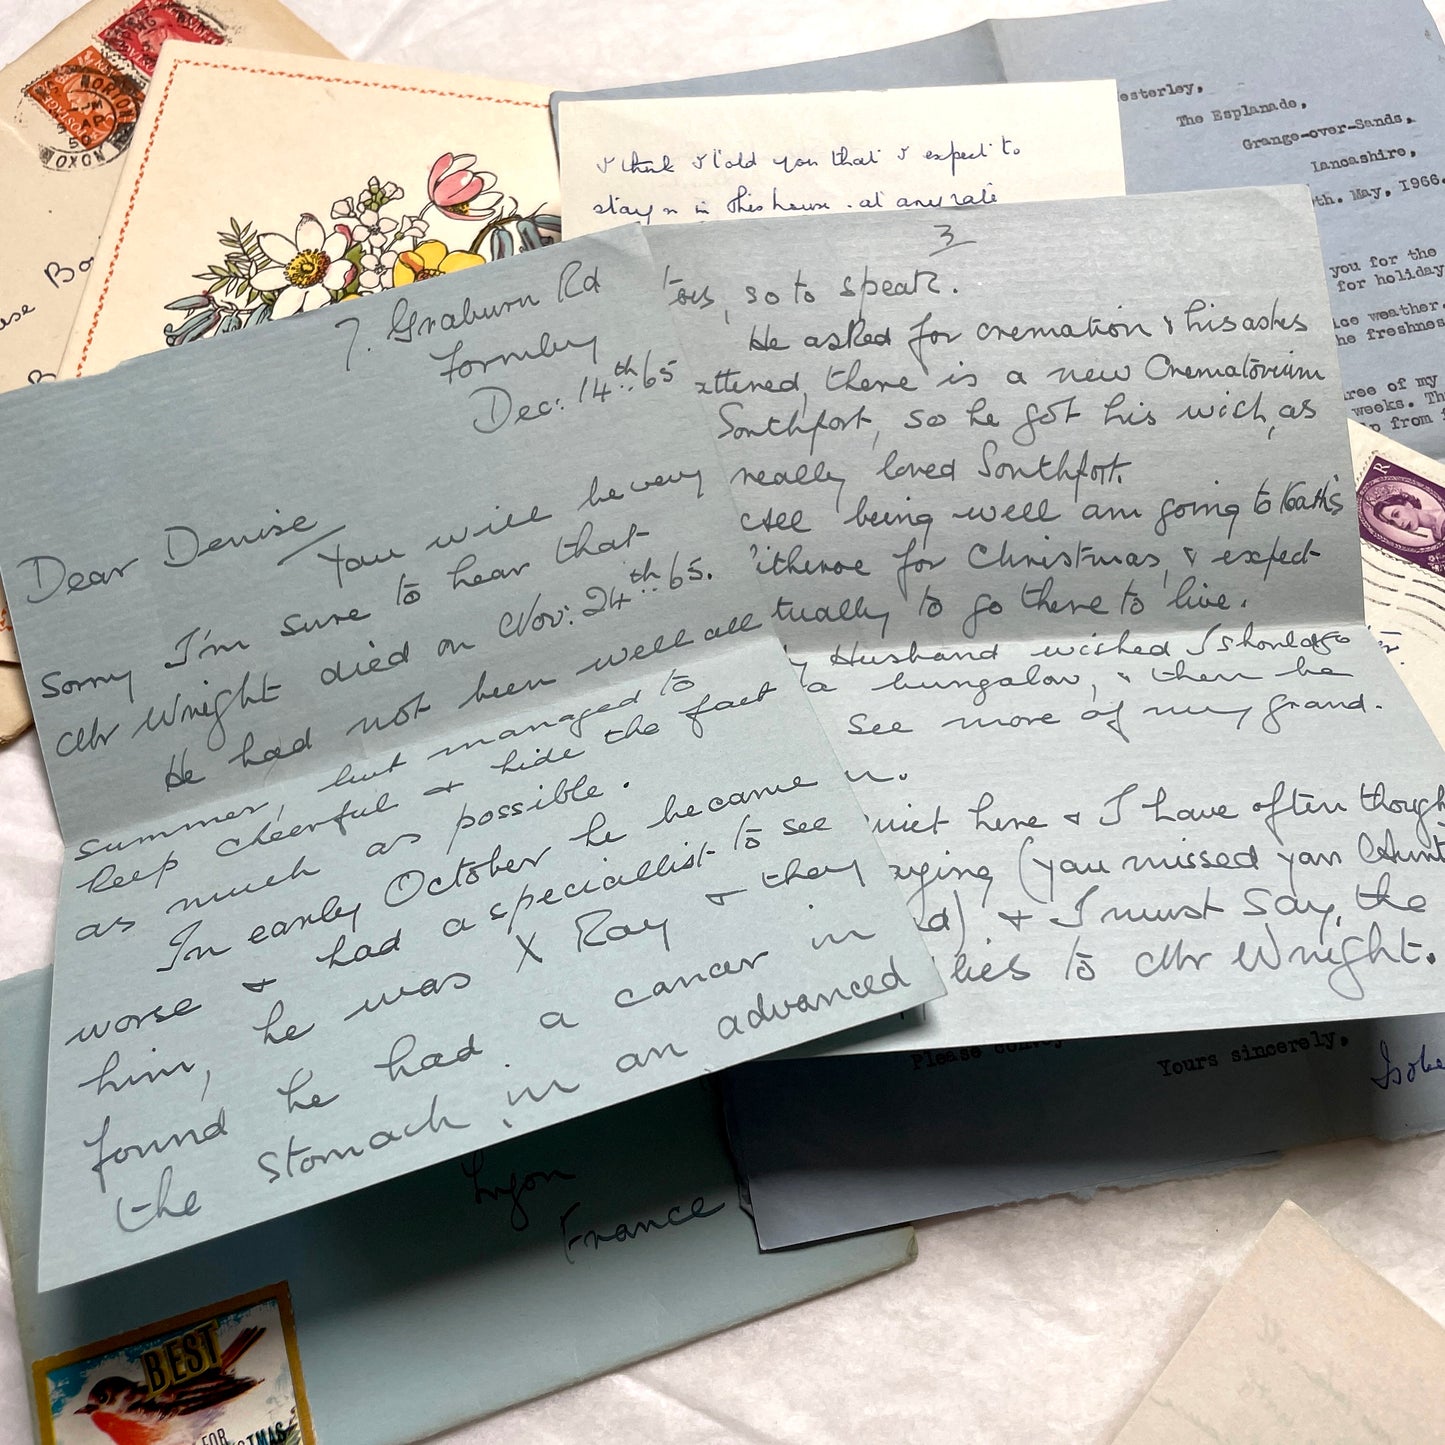 NORTON
AP
56
OXON
I think I told you that I expect to
stay in this house. at any rate
esterley,
The Esplanade,
Grange-over-Sands,
Lancashire,
th. May, 1966.
you for the
for holiday
ice weather.
he freshnes
ree of my
weeks. Th
p from
7. Graburn Rd
Formby
Dec: 14th 65
Dear Denise
You will be very
sorry I'm sure to hear that
Mr Wright died on Nov: 24th 65.
He had not been well all
summer, but managed to
keep cheerful & hide the fact
as much as possible.
In early October he became
worse & had a speciallist to see
him, he was X Ray & they
found he had a cancer in
the stomach, in an advanced
3
so to speak.
He asked for cremation & his ashes
attered, there is a new Crematorium
Southport, so he got his wish, as
really loved Southport.
All being well am going to Kath's
for Christmas, & expect
tually to go there to live.
y Husband wished I should go
a bungalow, & then be
see more of my grand.
n.
uiet here & I have often though
ying (you missed yan Aunt
d) & I must say, the
lies to Mr Wright.
Please convey
Yours sincerely,
Isobe
Lyon
France
BEST
FOR